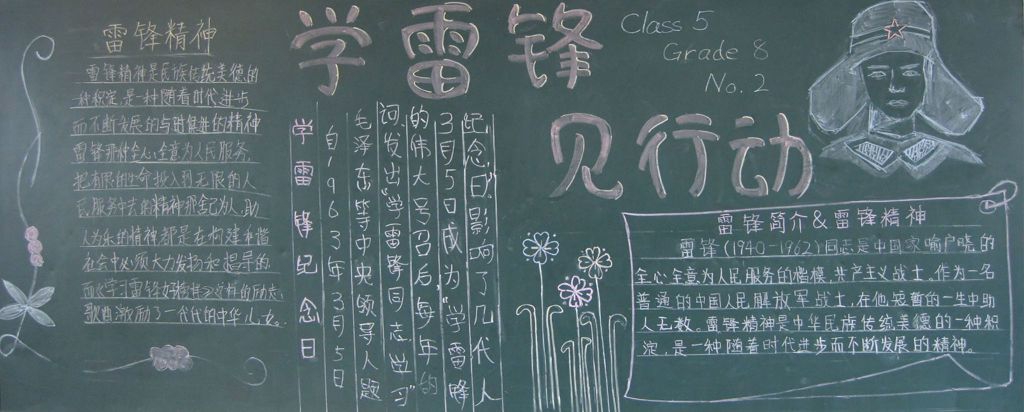 学雷锋
见行动
Class 5
Grade 8
No.2
雷锋精神
雷锋精神是民族传统美德的
一种积淀,是一种随着时代进步
而不断发展的与时俱进的精神
雷锋那种全心全意为人民服务,
把有限的生命投入到无限的人
民服务中去的精神那舍己为人,助
人为乐的精神都是在构建和谐
社会中必须大力发扬和提倡的
而《学习雷锋好榜样》这样的励志
歌曲激励了一代代的中华儿女。
学雷锋纪念日
自1963年3月5日
毛泽东等中央领导人题
词,发出“学雷锋同志,学习”
的伟大号召后,每年的
3月5日成为“学雷锋
纪念日”影响了几代人
雷锋简介&雷锋精神
雷锋(1940-1962)同志是中国家喻户晓的
全心全意为人民服务的楷模,共产主义战士,作为一名
普通的中国人民解放军战士,在他短暂的一生中助
人无数。雷锋精神是中华民族传统美德的一种积
淀,是一种随着时代进步而不断发展的精神。